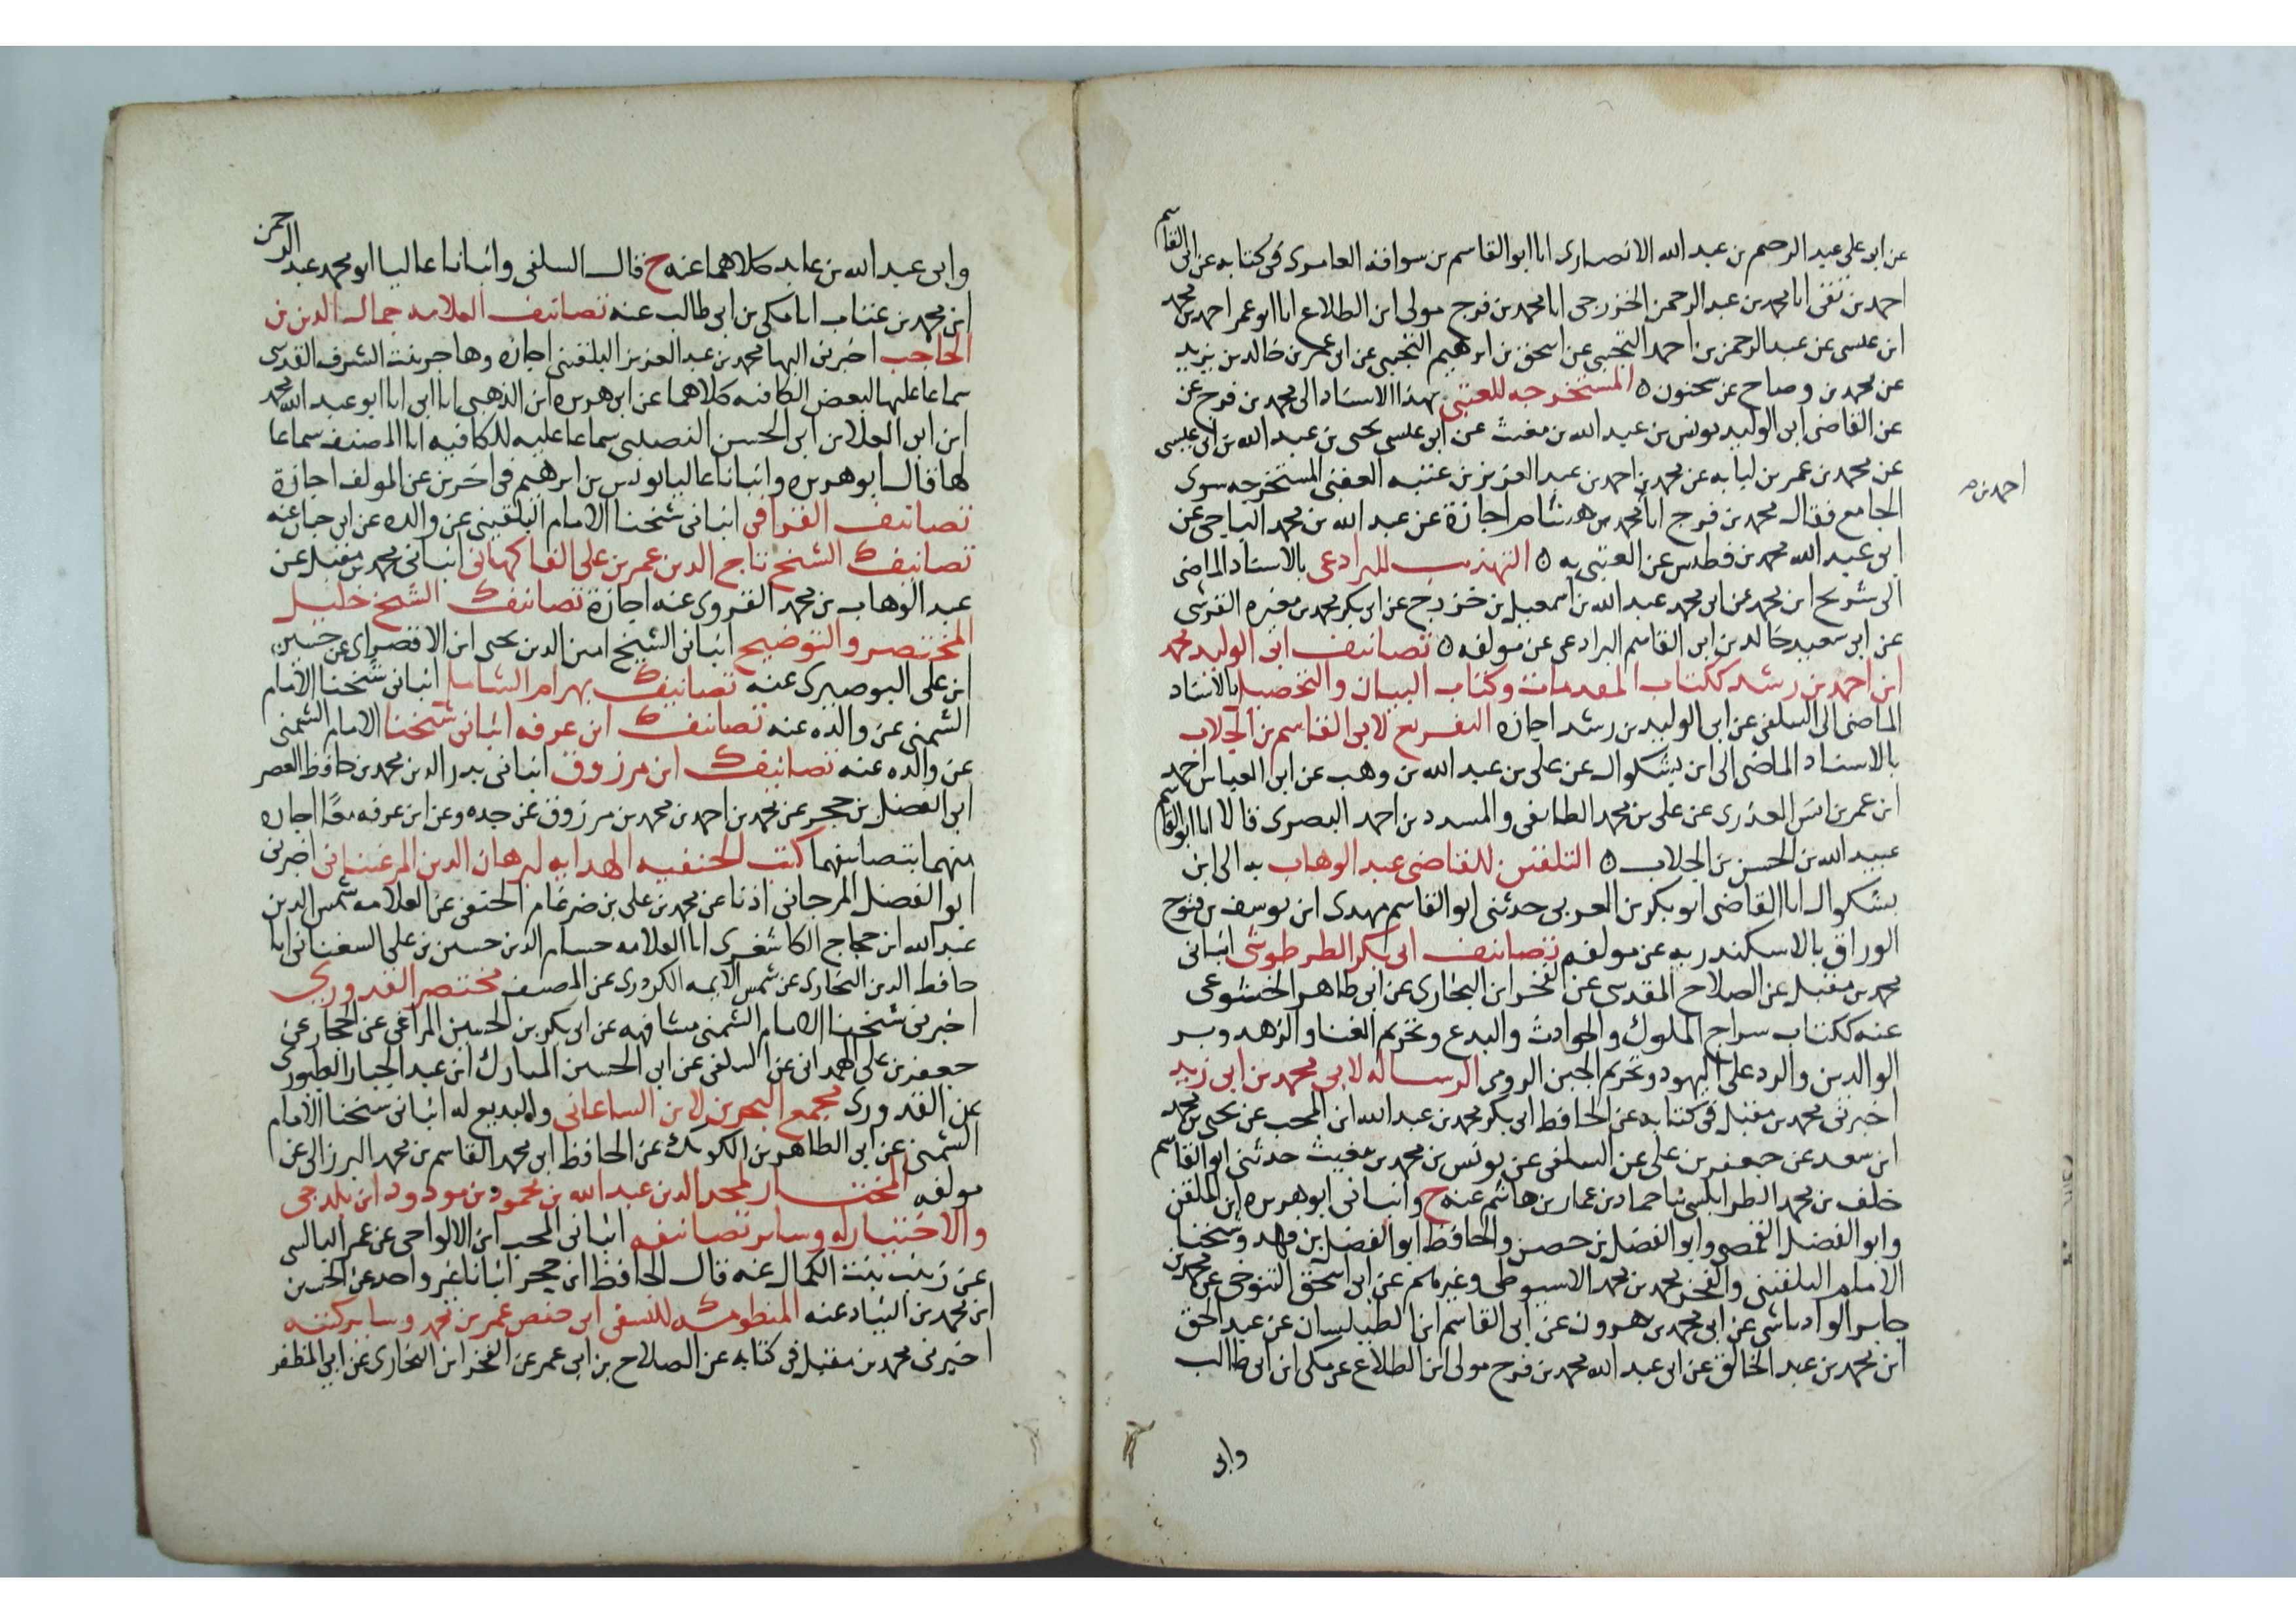 عن ابى على عبد الرحيم بن عبد الله الانصارى انا ابو القاسم بن سوافنه العامرى فى كتابه عن ابى القاسم
احمد بن تقى انا محمد بن عبد الرحمن الخزرجى انا محمد بن فرج مولى ابن الطلاع انا ابو عمر احمد بن محمد
ابن عيسى عن عبد الرحمن بن احمد التجيبى عن اسحق بن ابرهيم التجيبى عن ابى عمر بن خالد بن يزيد
عن محمد بن وضاح عن سحنون ه المستخرجه للعتبى بهذا الاسناد الى محمد بن فرج عن
عن القاضى ابى الوليد يونس بن عبد الله بن مغيث عن ابى عيسى يحيى بن عبد الله بن ابى عيسى
عن محمد بن عمر بن لبابه عن محمد بن احمد بن عبد العزيز بن عتبه العتبى المستخرجه سوى
احمد بن
الجامع فقال محمد بن فرج انا محمد بن هشام اجازة عن عبد الله بن محمد الباجى عن
ابى عبد الله محمد بن فطيس عن العتبى به ه التهذيب للبرادعى بالاسناد الماضى
الى شريح ابن محمد عن ابى محمد عبد الله بن اسمعيل بن خزرج عن ابى بكر محمد بن مغيره القرشى
عن ابى سعيد خالد بن ابى القاسم البرادعى عن مولفه ه تصانيف ابى الوليد محمد
ابن احمد بن رشد ككتاب المقدمات وكتاب البيان والتحصيل بالاسناد
الماضى الى السلفى عن ابى الوليد بن رشد اجازه التفريع لابى القاسم بن الجلاب
بالاسناد الماضى الى ابن بشكوال عن على بن عبد الله بن وهب عن ابى العباس احمد
ابن عمر بن انس العذرى عن على بن محمد الطايفى والمسدد بن احمد البصرى قالا انا ابو القاسم
عبيد الله بن الحسن بن الجلاب ه التلقين للقاضى عبد الوهاب به الى ابن
بشكوال انا القاضى ابو بكر بن العربى حدثنى ابو القاسم مهدى ابن يوسف بن فتوح
الوراق بالاسكندريه عن مولفه تصانيف ابى بكر الطرطوشى انبانى
محمد بن مقبل عن الصلاح المقدسى عن الفخر ابن البخارى عن ابى طاهر الخشوعى
عنه ككتاب سراج الملوك والحوادث والبدع وتحريم الغنا والزهد وبر
الوالدين والرد على اليهود وتحريم الجبن الرومى الرساله لابى محمد بن ابى زيد
اخبرنى محمد بن مقبل فى كتابه عن الحافظ ابى بكر محمد بن عبد الله ابن المحب عن يحيى بن محمد
ابن سعد عن جعفر بن على عن السلفى عن يونس بن محمد بن مغيث حدثنى ابو القاسم
خلف بن محمد الطرابلسى ثنا حماد بن عمار بن هاشم عنه ح وانبانى ابو هريره ابن الملقن
وابو الفضل القمصى وابو الفضل بن حصن والحافظ ابو الفضل بن فهد وشيخنا
الامام البلقينى والفخر محمد بن محمد الاسيوطى وغيرهم عن ابى اسحق التنوخى عن محمد بن
جابر الوادياشى عن ابى محمد بن هرون عن ابى القاسم ابن الطيلسان عن عبد الحق
ابن محمد بن عبد الخالق عن ابى عبد الله محمد بن فرج مولى ابن الطلاع عن مكى ابن ابى طالب
وابى
وابى عبد الله بن عابد كلاهما عنه ح قال السلفى وانبانا عاليا ابو محمد عبد الرحمن
ابن محمد بن عتاب انا مكى بن ابى طالب عنه تصانيف العلامه جمال الدين بن
الحاجب اخبرنى البها محمد بن عبد العزيز البلقينى اجازه وهاجر بنت الشرف القدسى
سماعا عليها لبعض الكافيه كلاهما عن ابى هريره ابن الذهبى انا ابى انا ابو عبد الله محمد
ابن ابى العلا بن ابى الحسن النصيبى سماعا عليه للكافيه انا المصنف سماعا
لها قال ابو هريره وانبانا عاليا يونس بن ابرهيم فى اخرين عن المولف اجازة
تصانيف القرافى انبانى شيخنا الامام البلقينى عن والده عن ابى حيان عنه
تصانيف الشيخ تاج الدين عمر بن على الفاكهانى انبانى محمد بن مقبل عن
عبد الوهاب بن محمد القروى عنه اجازة تصانيف الشيخ خليل
المختصر والتوضيح انبانى الشيخ امين الدين يحيى ابن الاقصراى عن حسين
ابن على البوصيرى عنه تصانيف بهرام الشامل انبانى شيخنا الامام
الشمنى عن والده عنه تصانيف ابن عرفه انبانى شيخنا الامام الشمنى
عن والده عنه تصانيف ابن مرزوق انبانى بدر الدين محمد بن حافظ العصر
ابى الفضل بن حجر عن محمد بن احمد بن محمد بن مرزوق عن جده وعن ابن عرفه معًا اجازه
منهما بتصانيفهما كتب الحنفيه الهدايه لبرهان الدين المرغينانى اخبرنى
ابو الفضل المرجانى اذنا عن محمد بن على بن ضرغام الحنفى عن العلامه شمس الدين
عبد الله ابن حجاج الكاشغرى انا العلامه حسام الدين حسين بن على السغناقى انا
حافظ الدين البخارى عن شمس الايمه الكردرى عن المصنف مختصر القدورى
اخبرنى شيخنا الامام الشمنى مشافهه عن ابى بكر بن الحسين المراغى عن الحجار عن
جعفر بن على الهمدانى عن السلفى عن ابى الحسين المبارك ابن عبد الجبار الطيورى
عن القدورى مجمع البحرين لابن الساعاتى والبديع له انبانى شيخنا الامام
الشمنى عن ابى الطاهر بن الكويك عن الحافظ ابى محمد القاسم بن محمد البرزالى عن
مولفه المختار لمجد الدين عبد الله بن محمود بن مودود ابن بلدجى
والاختيار له وساير تصانيفه انبانى المحب ابن الالواحى عن عمر البالسى
عن زينب بنت الكمال عنه قال الحافظ ابن حجر انبانا غير واحد عن الحسين
ابن محمد بن عنه المنظومه للنسفى ابى حفص عمر بن محمد وساير كتبه
اخبرنى محمد بن مقبل فى كتابه عن الصلاح بن ابى عمر عن الفخر ابن البخارى عن ابى المظفر